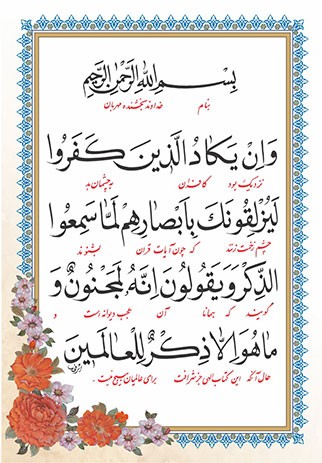 بِسْمِ اللهِ الرَّحْمنِ الرَّحِیمِ
بنام خداوند بخشنده مهربان
وَاِنْ یَکادُ الَّذینَ کَفَرُوا
نزدیک بود کافران به چشمان بد
لَیُزْلِقُونَكَ بِاَبْصارِهِمْ لَمّا سَمِعُوا
چشم زخمت زنند که چون آیات قرآن بشنوند
الذِّکْرَ وَیَقُولُونَ اِنَّهُ لَمَجْنُونٌ وَ
گویند که همانا آن عجب دیوانه است و
ماهُوَ اِلّا ذِکْرٌ لِلْعالَمینَ
حال آنکه این کتاب الهی جز شرافت برای عالمیان هیچ نیست .